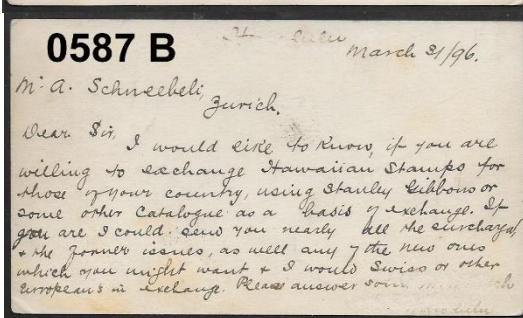 0587 B
Honolulu
March 31/96.
Mr A. Schneebeli,
Zurich.
Dear Sir,
I would like to know, if you are
willing to exchange Hawaiian Stamps for
those of your country, using Stanley Gibbons or
some other Catalogue as a basis of exchange. If
you are I could send you nearly all the surcharged
& the former issues, as well any of the new ones
which you might want & I would Swiss or other
Europeans in exchange. Please answer soon
Honolulu